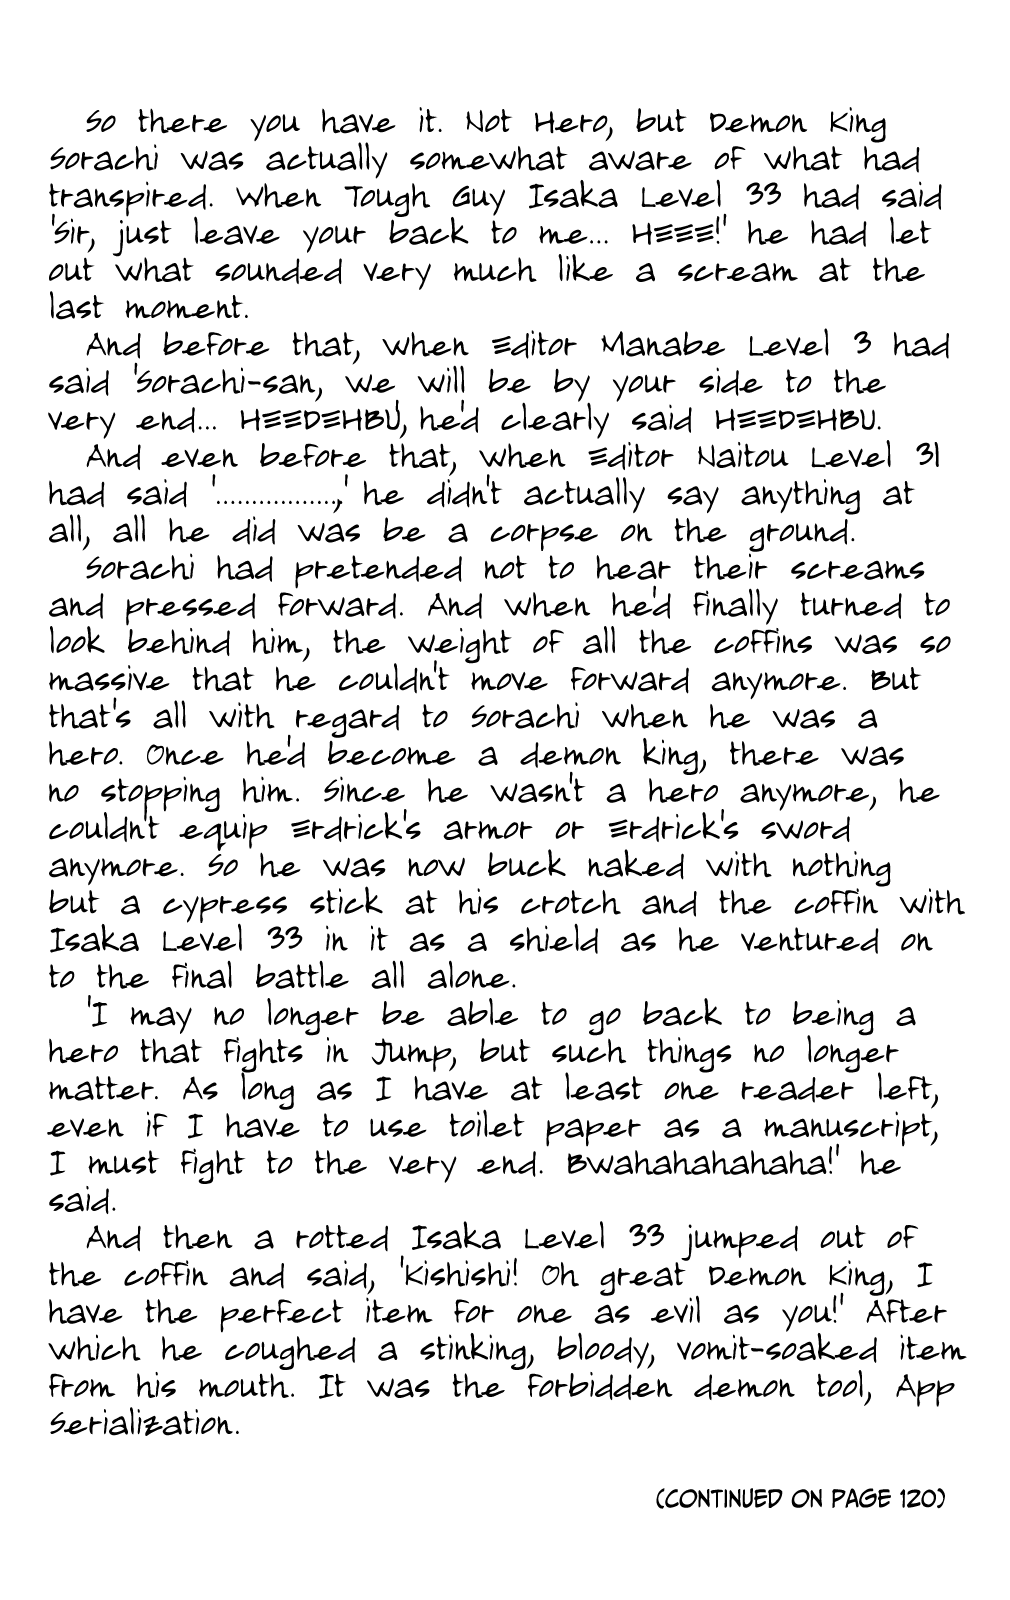 So there you have it. Not Hero, but Demon King
Sorachi was actually somewhat aware of what had
transpired. When Tough Guy Isaka Level 33 had said
'Sir, just leave your back to me... HEEE!' he had let
out what sounded very much like a scream at the
last moment.
And before that, when Editor Manabe Level 3 had
said 'Sorachi-san, we will be by your side to the
very end... HEEDEHBU', he'd clearly said HEEDEHBU.
And even before that, when Editor Naitou Level 31
had said '.................,' he didn't actually say anything at
all, all he did was be a corpse on the ground.
Sorachi had pretended not to hear their screams
and pressed forward. And when he'd finally turned to
look behind him, the weight of all the coffins was so
massive that he couldn't move forward anymore. But
that's all with regard to Sorachi when he was a
hero. Once he'd become a demon king, there was
no stopping him. Since he wasn't a hero anymore, he
couldn't equip Erdrick's armor or Erdrick's sword
anymore. So he was now buck naked with nothing
but a cypress stick at his crotch and the coffin with
Isaka Level 33 in it as a shield as he ventured on
to the final battle all alone.
'I may no longer be able to go back to being a
hero that fights in Jump, but such things no longer
matter. As long as I have at least one reader left,
even if I have to use toilet paper as a manuscript,
I must fight to the very end. Bwahahahahaha!' he
said.
And then a rotted Isaka Level 33 jumped out of
the coffin and said, 'Kishishi! Oh great Demon King, I
have the perfect item for one as evil as you!' After
which he coughed a stinking, bloody, vomit-soaked item
from his mouth. It was the forbidden demon tool, App
Serialization.
(CONTINUED ON PAGE 120)